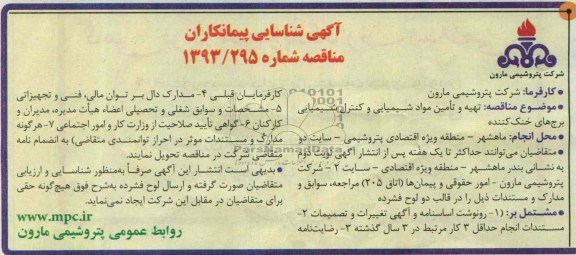 آگهی شناسایی پیمانکاران
مناقصه شماره ۱۳۹۳/۲۹۵
شرکت پتروشیمی مارون
● کارفرما: شرکت پتروشیمی مارون
● موضوع مناقصه: تهیه و تأمین مواد شیمیایی و کنترل شیمیایی
برج‌های خنک‌کننده
● محل انجام: ماهشهر - منطقه ویژه اقتصادی پتروشیمی - سایت دو
● متقاضیان می‌توانند حداکثر تا یک هفته پس از انتشار آگهی نوبت دوم
به نشانی بندر ماهشهر - منطقه ویژه اقتصادی - سایت ۲ - شرکت
پتروشیمی مارون - امور حقوقی و پیمان‌ها (اتاق ۲۰۵) مراجعه، سوابق و
مدارک و مستندات ذیل را در قالب دو لوح فشرده
● مشتمل بر: (۱- رونوشت اساسنامه و آگهی تغییرات و تصمیمات ۲-
مستندات انجام حداقل ۳ کار مرتبط در ۳ سال گذشته ۳- رضایت‌نامه
کارفرمایان قبلی ۴- مدارک دال بر توان مالی، فنی و تجهیزاتی
۵- مشخصات و سوابق شغلی و تحصیلی اعضاء هیأت مدیره، مدیران و
کارکنان ۶- گواهی تأیید صلاحیت از وزارت کار و امور اجتماعی ۷- هرگونه
مدارک و مستندات موثر در احراز توانمندی متقاضی) به انضمام نامه
متقاضی شرکت در مناقصه تحویل نمایند.
● بدیهی است انتشار این آگهی صرفاً به‌منظور شناسایی و ارزیابی
متقاضیان صورت گرفته و ارسال لوح فشرده به‌شرح فوق هیچ‌گونه حقی
برای متقاضیان در مقابل این شرکت ایجاد نمی‌نماید.
www.mpc.ir
روابط عمومی پتروشیمی مارون